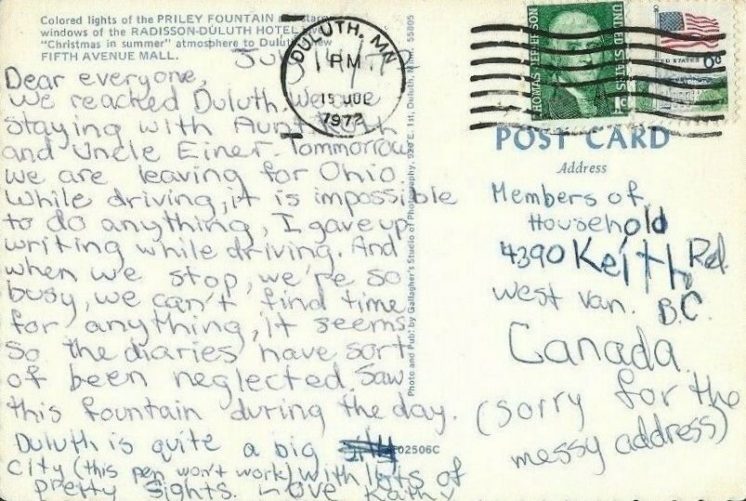 Colored lights of the PRILEY FOUNTAIN
windows of the RADISSON-DULUTH HOTEL
"Christmas in summer" atmosphere to Duluth
FIFTH AVENUE MALL.
DULUTH, MN
PM
15 JUL
1972
THOMAS JEFFERSON
UNITED STATES
1c
POST CARD
Address
Dear everyone,
We reached Duluth. We are
staying with Aunt
and Uncle Einer. Tommorrow
we are leaving for Ohio.
While driving, it is impossible
to do anything, I gave up
writing while driving. And
when we stop, we're so
busy, we can't find time
for anything, it seems.
So the diaries have sort
of been neglected. Saw
this fountain during the day.
Duluth is quite a big
city (this pen won't work) with lots of
pretty sights. Love Kathy
Photo and Pub. by Gallagher's Studio of Photography, 920 E. 1st, Duluth, Minn. 55805
02506C
Members of
Household
4390 Keith Rd.
West Van.
B.C.
Canada
(sorry for the
messy address)